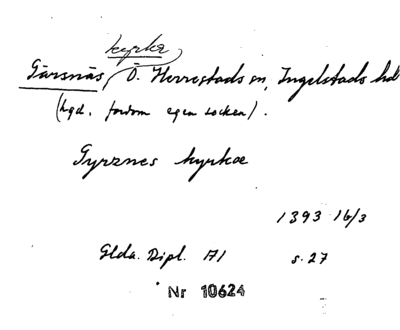 kyrka
Gärsnäs, Ö. Herrestads sn, Ingelstads hd
(hgd. fordom egen socken).
Gyrznes kyrkæ
1393 16/3
Glda. Dipl. A1 s. 27
Nr 10624